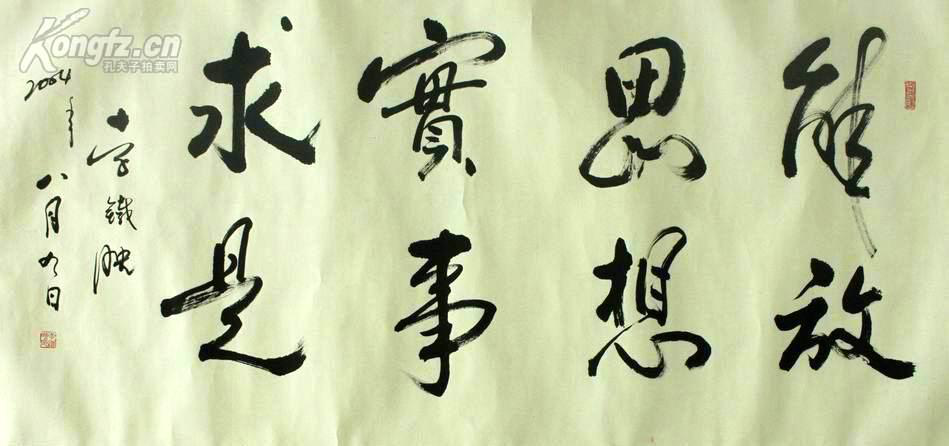 解放
思想
實事
求是
李鐵映
2004年
八月九日
Kongfz.cn
孔夫子拍卖网